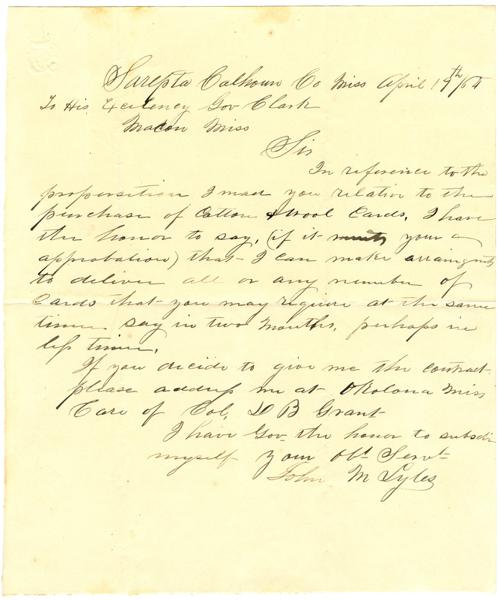 Sarepta Calhoun Co Miss April 19th/64
To His Excelency Gov Clark
Macon Miss
Sir
In reference to the
proposition I made you relation to the
purchase of Cotton & Wool Cards, I have
the honor to say, (if it meets your
approbation) that I can make arraingmts
to deliver all or any number of
Cards that you may require at the same
time say in two Months, perhaps in
less time.
If you decide to give me the contract
please address me at Okolona Miss
Care of Col, D B Grant
I have Gov the honor to subscribe
myself your Obt Servt
John M Lyles